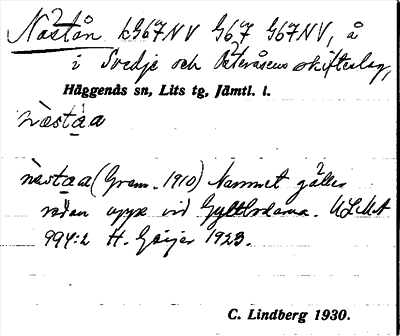 Nästån kG67NV G67 G67NV, å
i Svedje och Österåsens skifteslag,
Häggenås sn, Lits tg, Jämtl. l.
næstaa
næstaa (Gram. 1910) Namnet gäller
redan uppe vid ULMA
994:2 H. Geijer 1923.
C. Lindberg 1930.